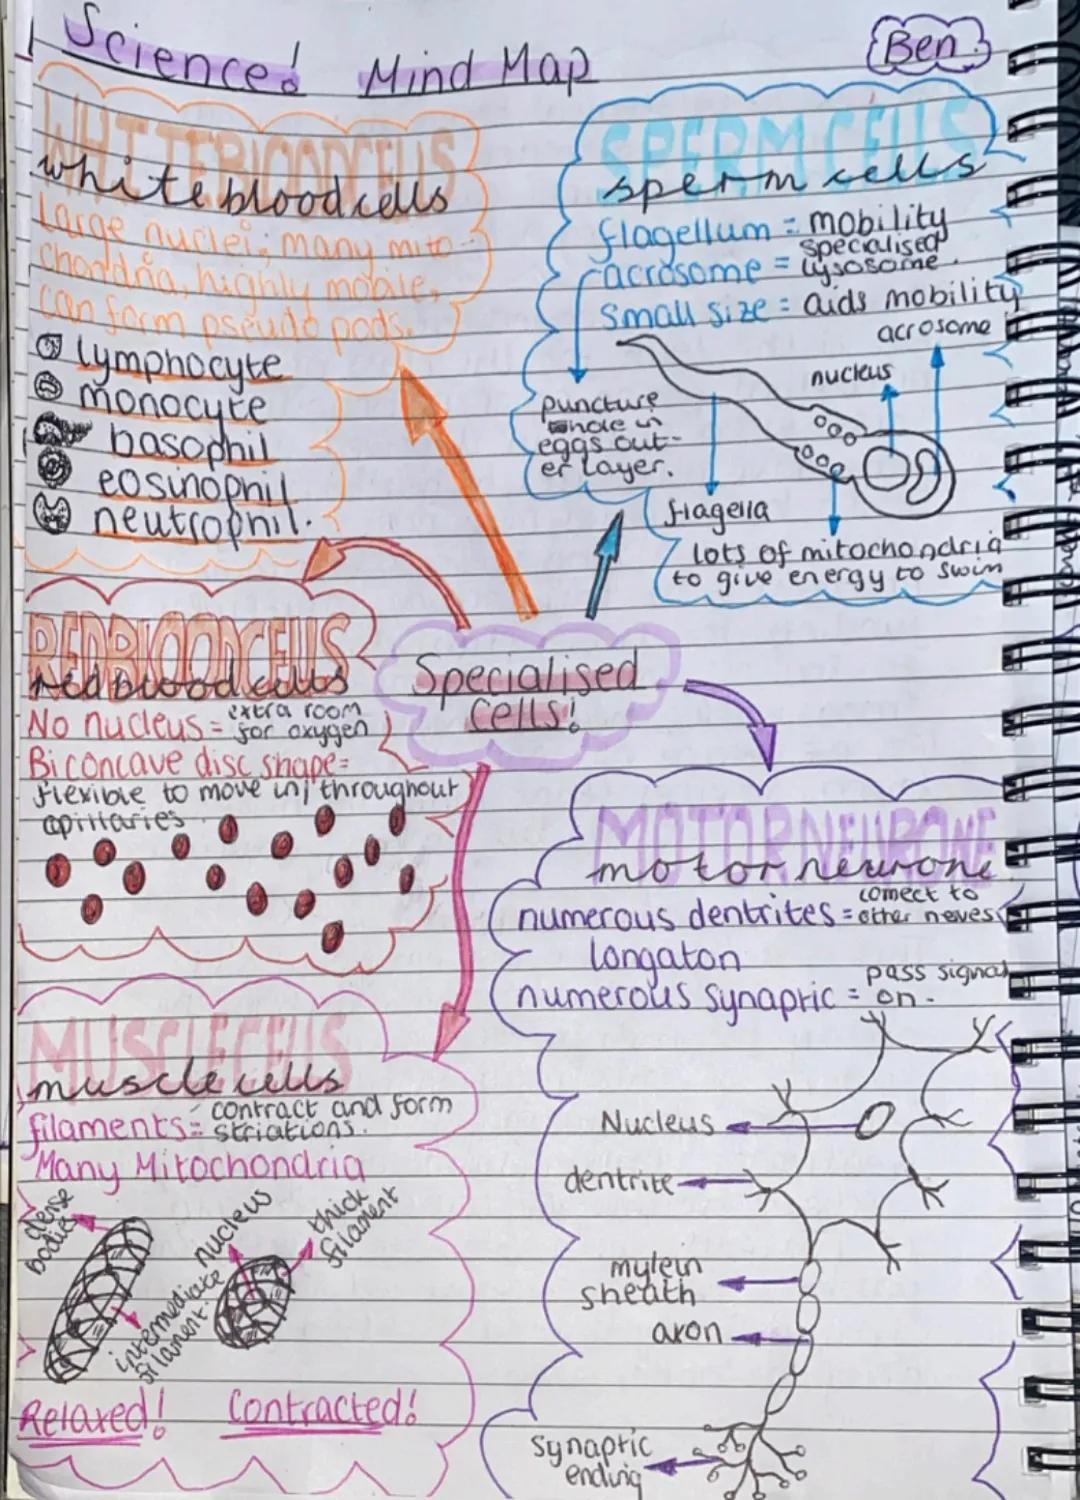 Science! Mind Map
Ben
WHITE BLOOD CELLS
white blood cells
Large nuclei, many mito-
chondria, highly mobile,
can form pseudo pods.
lymphocyte
monocyte
basophil
eosinophil
neutrophil.
SPERM CELLS
sperm cells
flagellum = mobility
acrosome = specialised
lysosome.
small size = aids mobility
acrosome
nucleus
puncture
hole in
eggs out-
er layer.
flagella
lots of mitochondria
to give energy to swim
RED BLOOD CELLS
red blood cells
No nucleus = extra room
for oxygen
Biconcave disc shape=
flexible to move in/throughout
capillaries
Specialised
cells!
MOTOR NEURONE
motor neurone
numerous dentrites = connect to
other neves
longaton
numerous synaptric = pass signal
on.
Nucleus
dentrite
mylein
sheath
axon
synaptic
ending
MUSCLE CELLS
muscle cells
filaments= contract and form
striations.
Many Mitochondria
dense
bodies
intermediate
filament.
nucleus
thick
filament
Relaxed! Contracted!